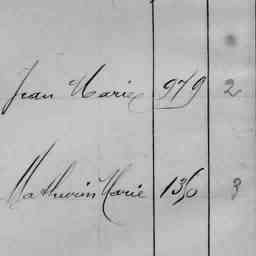 Jean Marie 979 2
Mathurin Marie 136 3